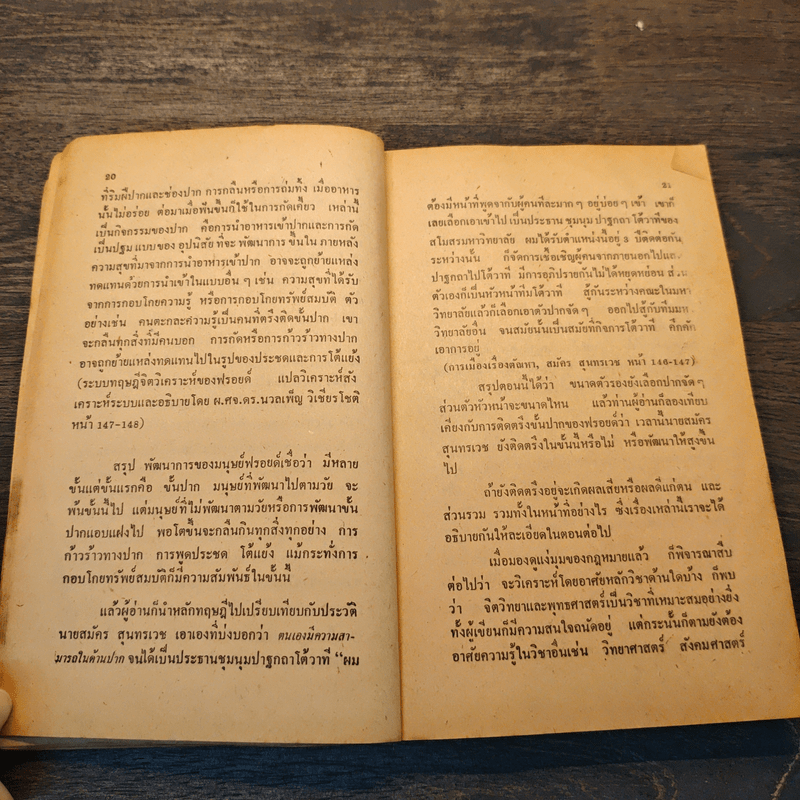 20
ที่ริมฝีปากและช่องปาก การกลืนหรือการถ่มทิ้ง เมื่ออาหาร
นั้นไม่อร่อย ต่อมาเมื่อฟันขึ้นก็ใช้ในการกัดเคี้ยว เหล่านี้
เป็นกิจกรรมของปาก คือการนำอาหารเข้าปากและการกัด
เป็นปฐม แบบของ อุปนิสัย ที่จะ พัฒนาการ ขึ้นใน ภายหลัง
ความสุขที่มาจากการนำอาหารเข้าปาก อาจจะถูกย้ายแหล่ง
ทดแทนด้วยการนำเข้าในแบบอื่น ๆ เช่น ความสุขที่ได้รับ
จากการกอบโกยความรู้ หรือการกอบโกยทรัพย์สมบัติ ตัว
อย่างเช่น คนตะกละความรู้เป็นคนที่ตรึงติดขั้นปาก เขา
จะกลืนทุกสิ่งที่มีคนบอก การกัดหรือการก้าวร้าวทางปาก
อาจถูกย้ายแหล่งทดแทนไปในรูปของประชดและการโต้แย้ง
(ระบบทฤษฎีจิตวิเคราะห์ของฟรอยด์ แปลวิเคราะห์สัง
เคราะห์ระบบและอธิบายโดย ผ.ศจ.ดร.นวลเพ็ญ วิเชียรโชติ
หน้า 147-148)
สรุป พัฒนาการของมนุษย์ฟรอยด์เชื่อว่า มีหลาย
ขั้นแต่ขั้นแรกคือ ขั้นปาก มนุษย์ที่พัฒนาไปตามวัย จะ
พ้นขั้นนี้ไป แต่มนุษย์ที่ไม่พัฒนาตามวัยหรือการพัฒนาขั้น
ปากแอบแฝงไป พอโตขึ้นจะกลืนกินทุกสิ่งทุกอย่าง การ
ก้าวร้าวทางปาก การพูดประชด โต้แย้ง แม้กระทั่งการ
กอบโกยทรัพย์สมบัติก็มีความสัมพันธ์ในขั้นนี้
แล้วผู้อ่านก็นำหลักทฤษฎีไปเปรียบเทียบกับประวัติ
นายสมัคร สุนทรเวช เอาเองที่บ่งบอกว่า ตนเองมีความสา-
มารถในด้านปาก จนได้เป็นประธานชุมนุมปาฐกถาโต้วาที "ผม
21
ต้องมีหน้าที่พูดจากับผู้คนทีละมาก ๆ อยู่บ่อย ๆ เข้า เขาก็
เลยเลือกเอาเข้าไป เป็นประธาน ชุมนุม ปาฐกถา โต้วาทีของ
สโมสรมหาวิทยาลัย ผมได้รับตำแหน่งนี้อยู่ 3 ปีติดต่อกัน
ระหว่างนั้น ก็จัดการเชื้อเชิญผู้คนจากภายนอกไปแสดง
ปาฐกถาไปโต้วาที มีการอภิปรายกันไม่ได้หยุดหย่อน ส่วน
ตัวเองก็เป็นหัวหน้าทีมโต้วาที สู้กันระหว่างคณะในมหา
วิทยาลัยแล้วก็เลือกเอาตัวปากจัด ๆ ออกไปสู้กับทีมมหา
วิทยาลัยอื่น จนสมัยนั้นเป็นสมัยที่กิจการโต้วาที คึกคัก
เอาการอยู่
(การเมืองเรื่องตัณหา, สมัคร สุนทรเวช หน้า 146-147)
สรุปตอนนี้ได้ว่า ขนาดตัวรองยังเลือกปากจัด ๆ
ส่วนตัวหัวหน้าจะขนาดไหน แล้วท่านผู้อ่านก็ลองเทียบ
เคียงกับการติดตรึงขั้นปากของฟรอยด์ว่า เวลานี้นายสมัคร
สุนทรเวช ยังติดตรึงในขั้นนี้หรือไม่ หรือพัฒนาให้สูงขึ้น
ไป
ถ้ายังติดตรึงอยู่จะเกิดผลเสียหรือผลดีแก่ตน และ
ส่วนรวม รวมทั้งในหน้าที่อย่างไร ซึ่งเรื่องเหล่านี้เราจะได้
อธิบายกันให้ละเอียดในตอนต่อไป
เมื่อมองดูแง่มุมของกฎหมายแล้ว ก็พิจารณาสืบ
ต่อไปว่า จะวิเคราะห์โดยอาศัยหลักวิชาด้านใดบ้าง ก็พบ
ว่า จิตวิทยาและพุทธศาสตร์เป็นวิชาที่เหมาะสมอย่างยิ่ง
ทั้งผู้เขียนก็มีความสนใจถนัดอยู่ แต่กระนั้นก็ตามยังต้อง
อาศัยความรู้ในวิชาอื่นเช่น วิทยาศาสตร์ สังคมศาสตร์